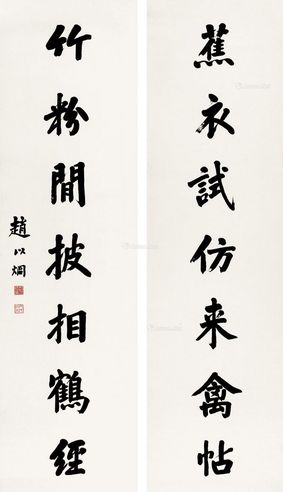 蕉衣試仿来禽帖
竹粉閒披相鶴經
趙以烱